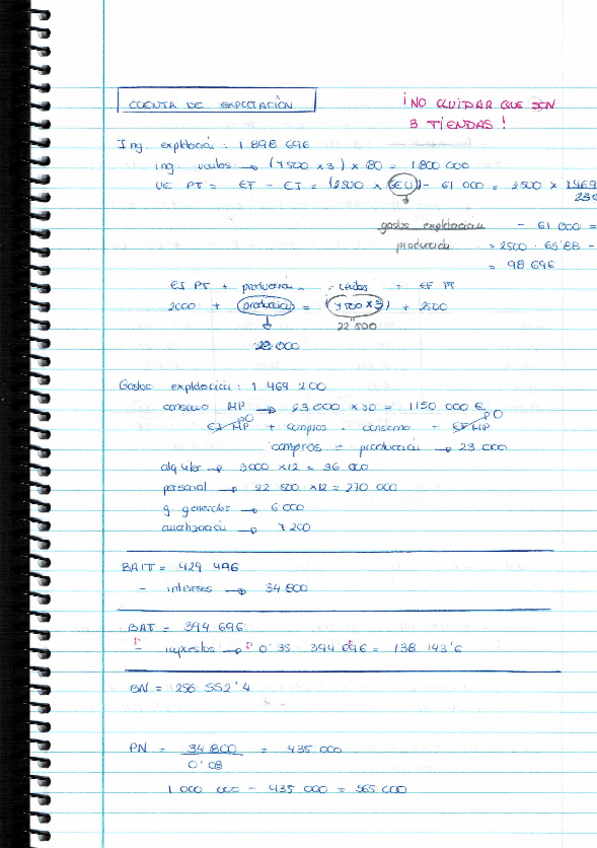 CUENTA DE EXPLOTACIÓN
¡NO OLVIDAR QUE SON
3 TIENDAS!
Ing. explotación: 1 898 696
ing. ventas → (7500 x 3) x 80 = 1 800 000
VE PT = EF - EI = (2500 x CEU) - 61 000 = 2500 x 1469
230
gastos explotación - 61 000 =
producción = 2500 · 63'88 -
= 98 696
EI PT + producción = ventas + EF PT
2000 + producción = (7500 x 3) + 2500
22 500
23 000
Gastos explotación: 1 469 200
consumo MP → 23 000 x 50 = 1150 000 €
EI MP 0 + compras = consumo + EF MP 0
compras = producción → 23 000
alquiler → 3000 x 12 = 36 000
personal → 22 500 x 12 = 270 000
g generales → 6 000
amortización → 7 200
BAIT = 429 496
- intereses → 34 800
BAT = 394 696
- impuestos → 0'35 · 394 696 = 138 143'6
BN = 256 552'4
PN = 34 800 / 0'08 = 435 000
1 000 000 - 435 000 = 565 000